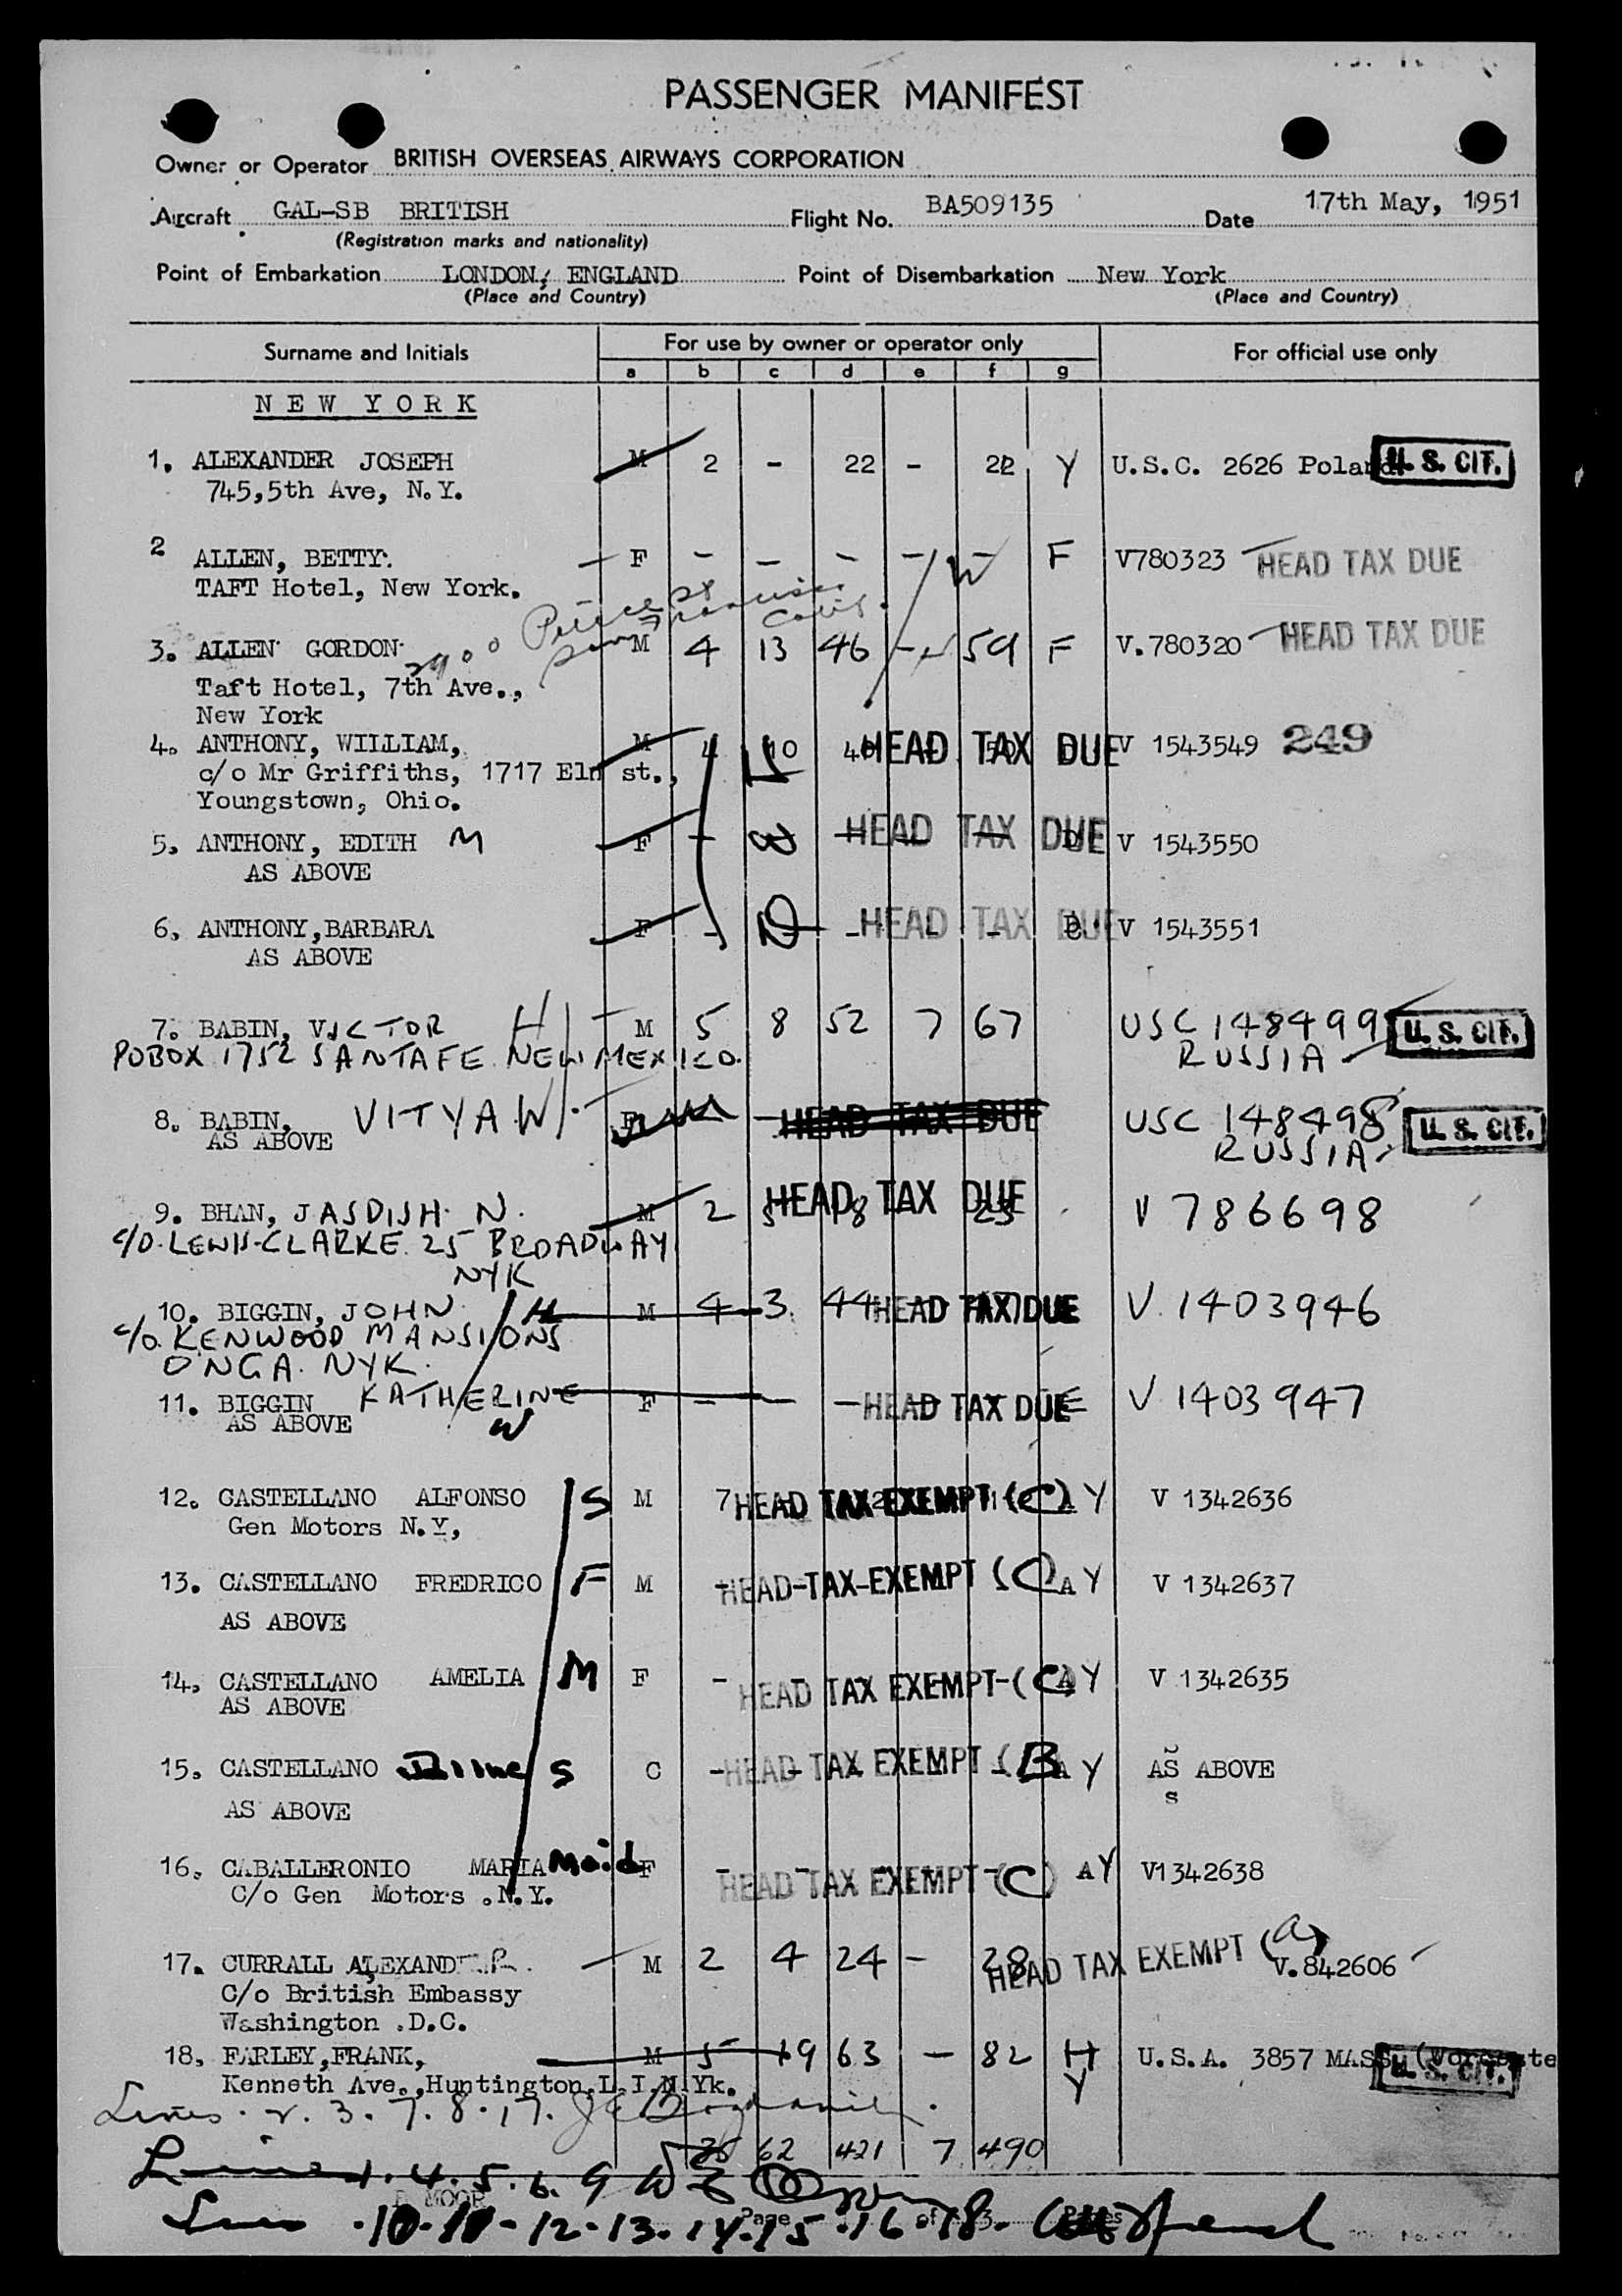 PASSENGER MANIFEST
Owner or Operator BRITISH OVERSEAS AIRWAYS CORPORATION
Aircraft GAL-SB BRITISH Flight No. BA509135 Date 17th May, 1951
(Registration marks and nationality)
Point of Embarkation LONDON, ENGLAND Point of Disembarkation New York
(Place and Country) (Place and Country)
Surname and Initials For use by owner or operator only For official use only
a b c d e f g
NEW YORK
1. ALEXANDER JOSEPH M 2 - 22 - 22 Y U.S.C. 2626 Poland U. S. CIT.
745,5th Ave, N.Y.
2 ALLEN, BETTY. F - - - - - F V780323 HEAD TAX DUE
TAFT Hotel, New York. W
2900 Pierce St
San Francisco Calif.
3. ALLEN GORDON M 4 13 46 - 59 F V.780320 HEAD TAX DUE
Taft Hotel, 7th Ave.,
New York
4. ANTHONY, WILLIAM, M 4 10 40 HEAD TAX DUE V 1543549 249
c/o Mr Griffiths, 1717 Elm st.,
Youngstown, Ohio.
5. ANTHONY, EDITH M F - HEAD TAX DUE V 1543550
AS ABOVE
6. ANTHONY,BARBARA F - D - HEAD TAX DUE V 1543551
AS ABOVE
7. BABIN, VICTOR H M 5 8 52 7 67 USC 148499 U. S. CIT.
POBOX 1752 SANTAFE NEW MEXICO. RUSSIA
8. BABIN, VITYA W F HEAD TAX DUE USC 148498 U. S. CIT.
AS ABOVE RUSSIA
9. BHAN, JASDISH N. M 2 5 18 HEAD TAX DUE 23 V 786698
C/O LEWIS-CLARKE 25 BROADWAY
NYK
10. BIGGIN, JOHN H M 4 3 44 HEAD TAX DUE V. 1403946
C/O KENWOOD MANSIONS
ONGA. NYK.
11. BIGGIN KATHERINE F - - - HEAD TAX DUE V 1403947
AS ABOVE W
12. CASTELLANO ALFONSO S M 7 HEAD TAX EXEMPT (C) A Y V 1342636
Gen Motors N.Y,
13. CASTELLANO FREDRICO F M - HEAD TAX EXEMPT (C) A Y V 1342637
AS ABOVE
14. CASTELLANO AMELIA M F - HEAD TAX EXEMPT (C) A Y V 1342635
AS ABOVE
15. CASTELLANO S C - HEAD TAX EXEMPT (B) A Y AS ABOVE
AS ABOVE s
16. CABALLERONIO MARIA Maid F - HEAD TAX EXEMPT (C) A Y V1342638
C/o Gen Motors .N.Y.
17. CURRALL ALEXANDER M 2 4 24 - 28 HEAD TAX EXEMPT (a) V.842606
C/o British Embassy
Washington .D.C.
18. FARLEY,FRANK, M 5 19 63 - 82 H U.S.A. 3857 MASS. (Worceste U. S. CIT.
Kenneth Ave.,Huntington.L.I.N.Yk. Y
Lines. 2. 3. 7. 8. 17.
35 62 421 7 490
Lines 1. 4. 5. 6. 9
Lines .10-11-12-13.14.15.16.18.
Page of 3 Pages